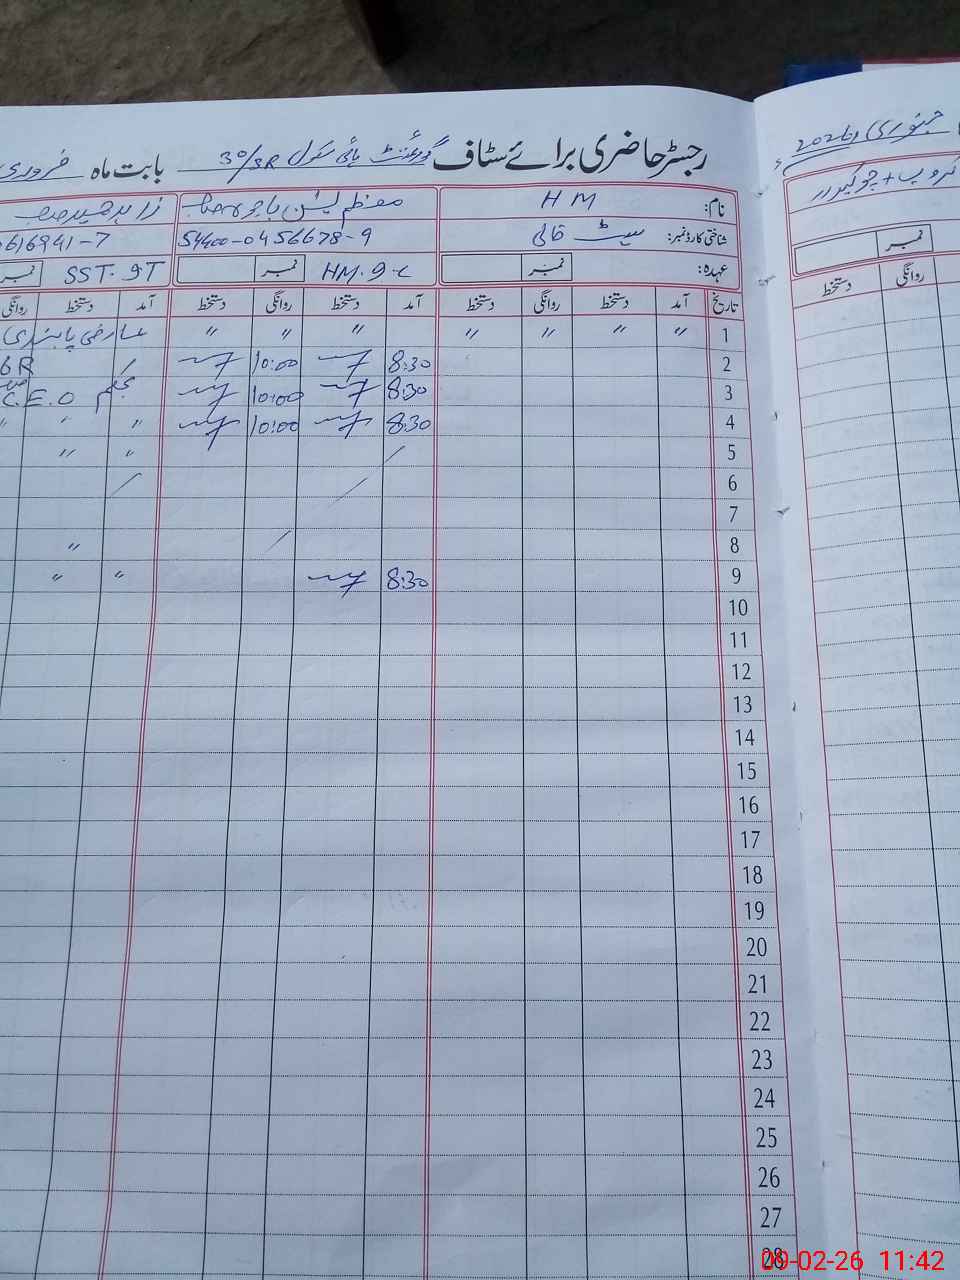 رجسٹر حاضری برائے سٹاف گورنمنٹ ہائی سکول 30/3R بابت ماہ فروری
جنوری 2026ء
نام: HM
زاہد حمید صاحب
شناختی کارڈ نمبر: سیٹ خالی 54400-0456678-9 616941-7
عہدہ: نمبر HM.9-C نمبر SST. نمبر
تاریخ آمد دستخط روانگی دستخط آمد دستخط روانگی دستخط آمد دستخط روانگی
1 " " " " " " " عارضی پابندی
2 8:30 10:00 6R
3 8:30 10:00 بحکم C.E.O
4 8:30 10:00 " " "
5 " "
6
7
8 "
9 8:30 " "
10
11
12
13
14
15
16
17
18
19
20
21
22
23
24
25
26
27
28
چوکیدار +
نمبر
روانگی دستخط
09-02-26 11:42